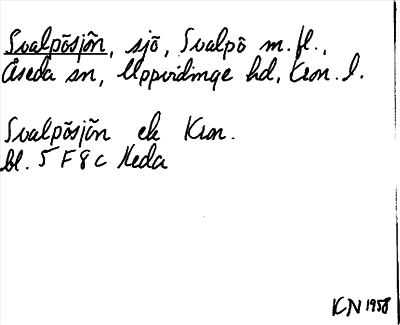 Svalpõsjõn, sjõ, Svalpõ m. fl.,
Åseda sn, Uppvidinge hd, Kron. l.

Svalpõsjõn ek Kron.
bl. 5 F 8 c Heda
KN 1958